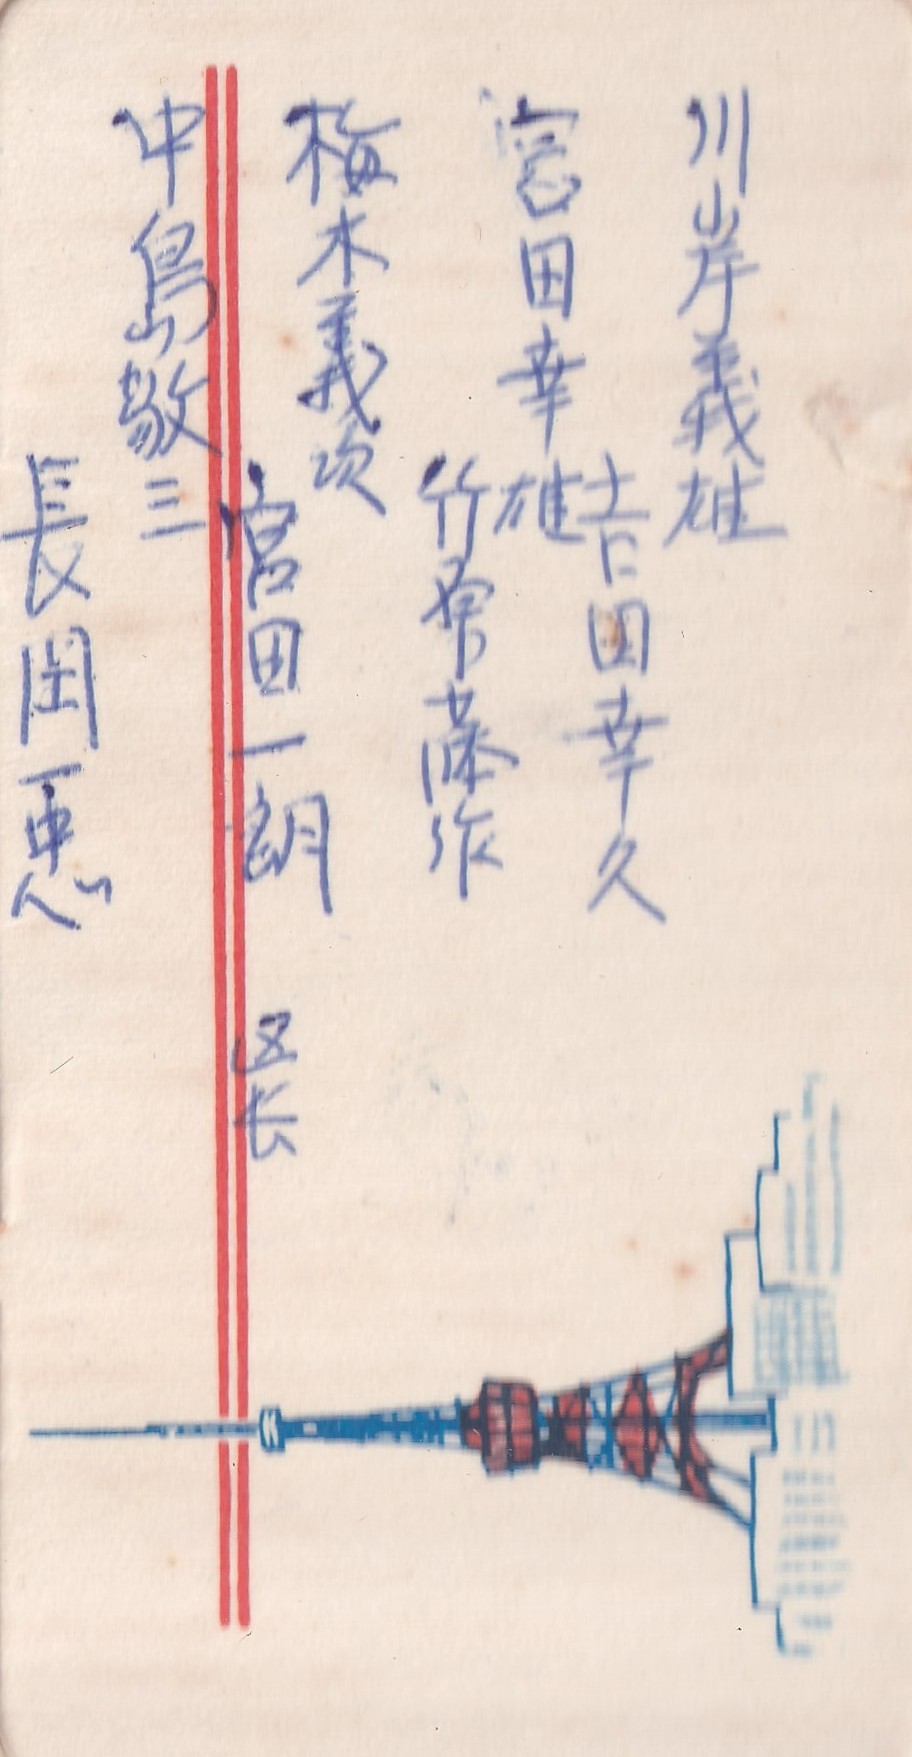 川岸義雄
吉田幸久
宮田幸雄
竹原藤作
梅木義次
宮田一朗
区长
中島敬三
長岡恵